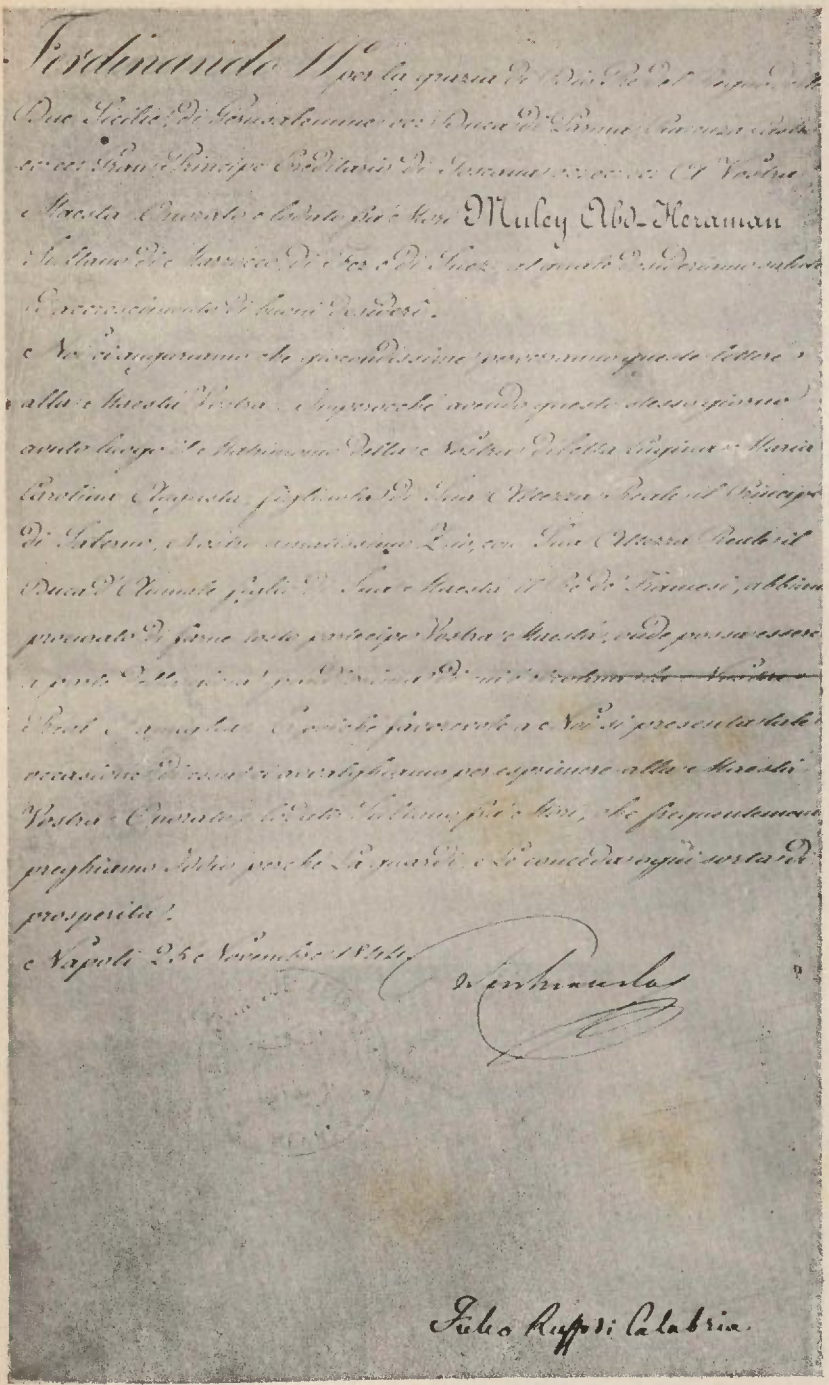 Ferdinando II° per la grazia di Dio Re del Regno delle
Due Sicilie, di Gerusalemme ecc: Duca di Parma, Piacenza, Castro
ecc ecc Gran Principe Ereditario di Toscana ecc ecc ecc A Vostra
Maestà Onorato e lodato fra' Mori Muley Abd-Heraman
Sultano di Marrocco, di Fez e di Suez, al amato desideriamo salute
ed accrescimento di buoni desideri.
Noi ci auguriamo che giocondissime perverranno queste lettere
alla Maestà Vostra. Imperocchè avendo questo stesso giorno
avuto luogo il Matrimonio della Nostra diletta Cugina Maria
Carolina Augusta, figliuola di Sua Altezza Reale il Principe
di Salerno, Nostro amatissimo Zio, con Sua Altezza Reale il
Duca d'Aumale figlio di Sua Maestà il Re de' Francesi, abbiam
procurato di farne tosto partecipe Vostra Maestà, onde possa essere
a parte della di cui
Real Famiglia. E poichè favorevole a Noi si presenta tale
occasione di essa ci avvalghiamo per esprimere alla Maestà
Vostra Onorato e lodato Sultano fra' Mori, che frequentemente
preghiamo Iddio perchè La guardi, e Le conceda ogni sorta di
prosperità.
Napoli 25 Novembre 1844.
Ferdinando
Fulco Ruffo di Calabria.